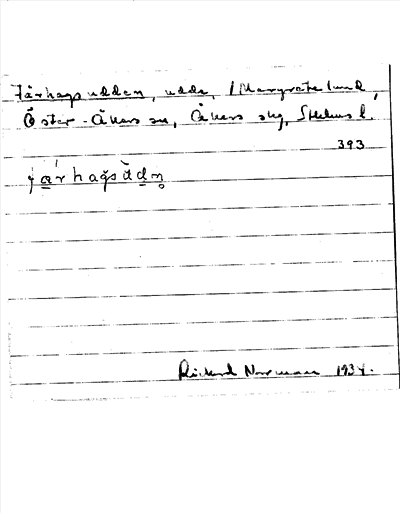 Fårhagsudden, udde, Margretelund,
Öster-Åkers sn, Åkers skg, Sthlms l.
393
fårhagsùdn̥
Rickard Norrman 1934.